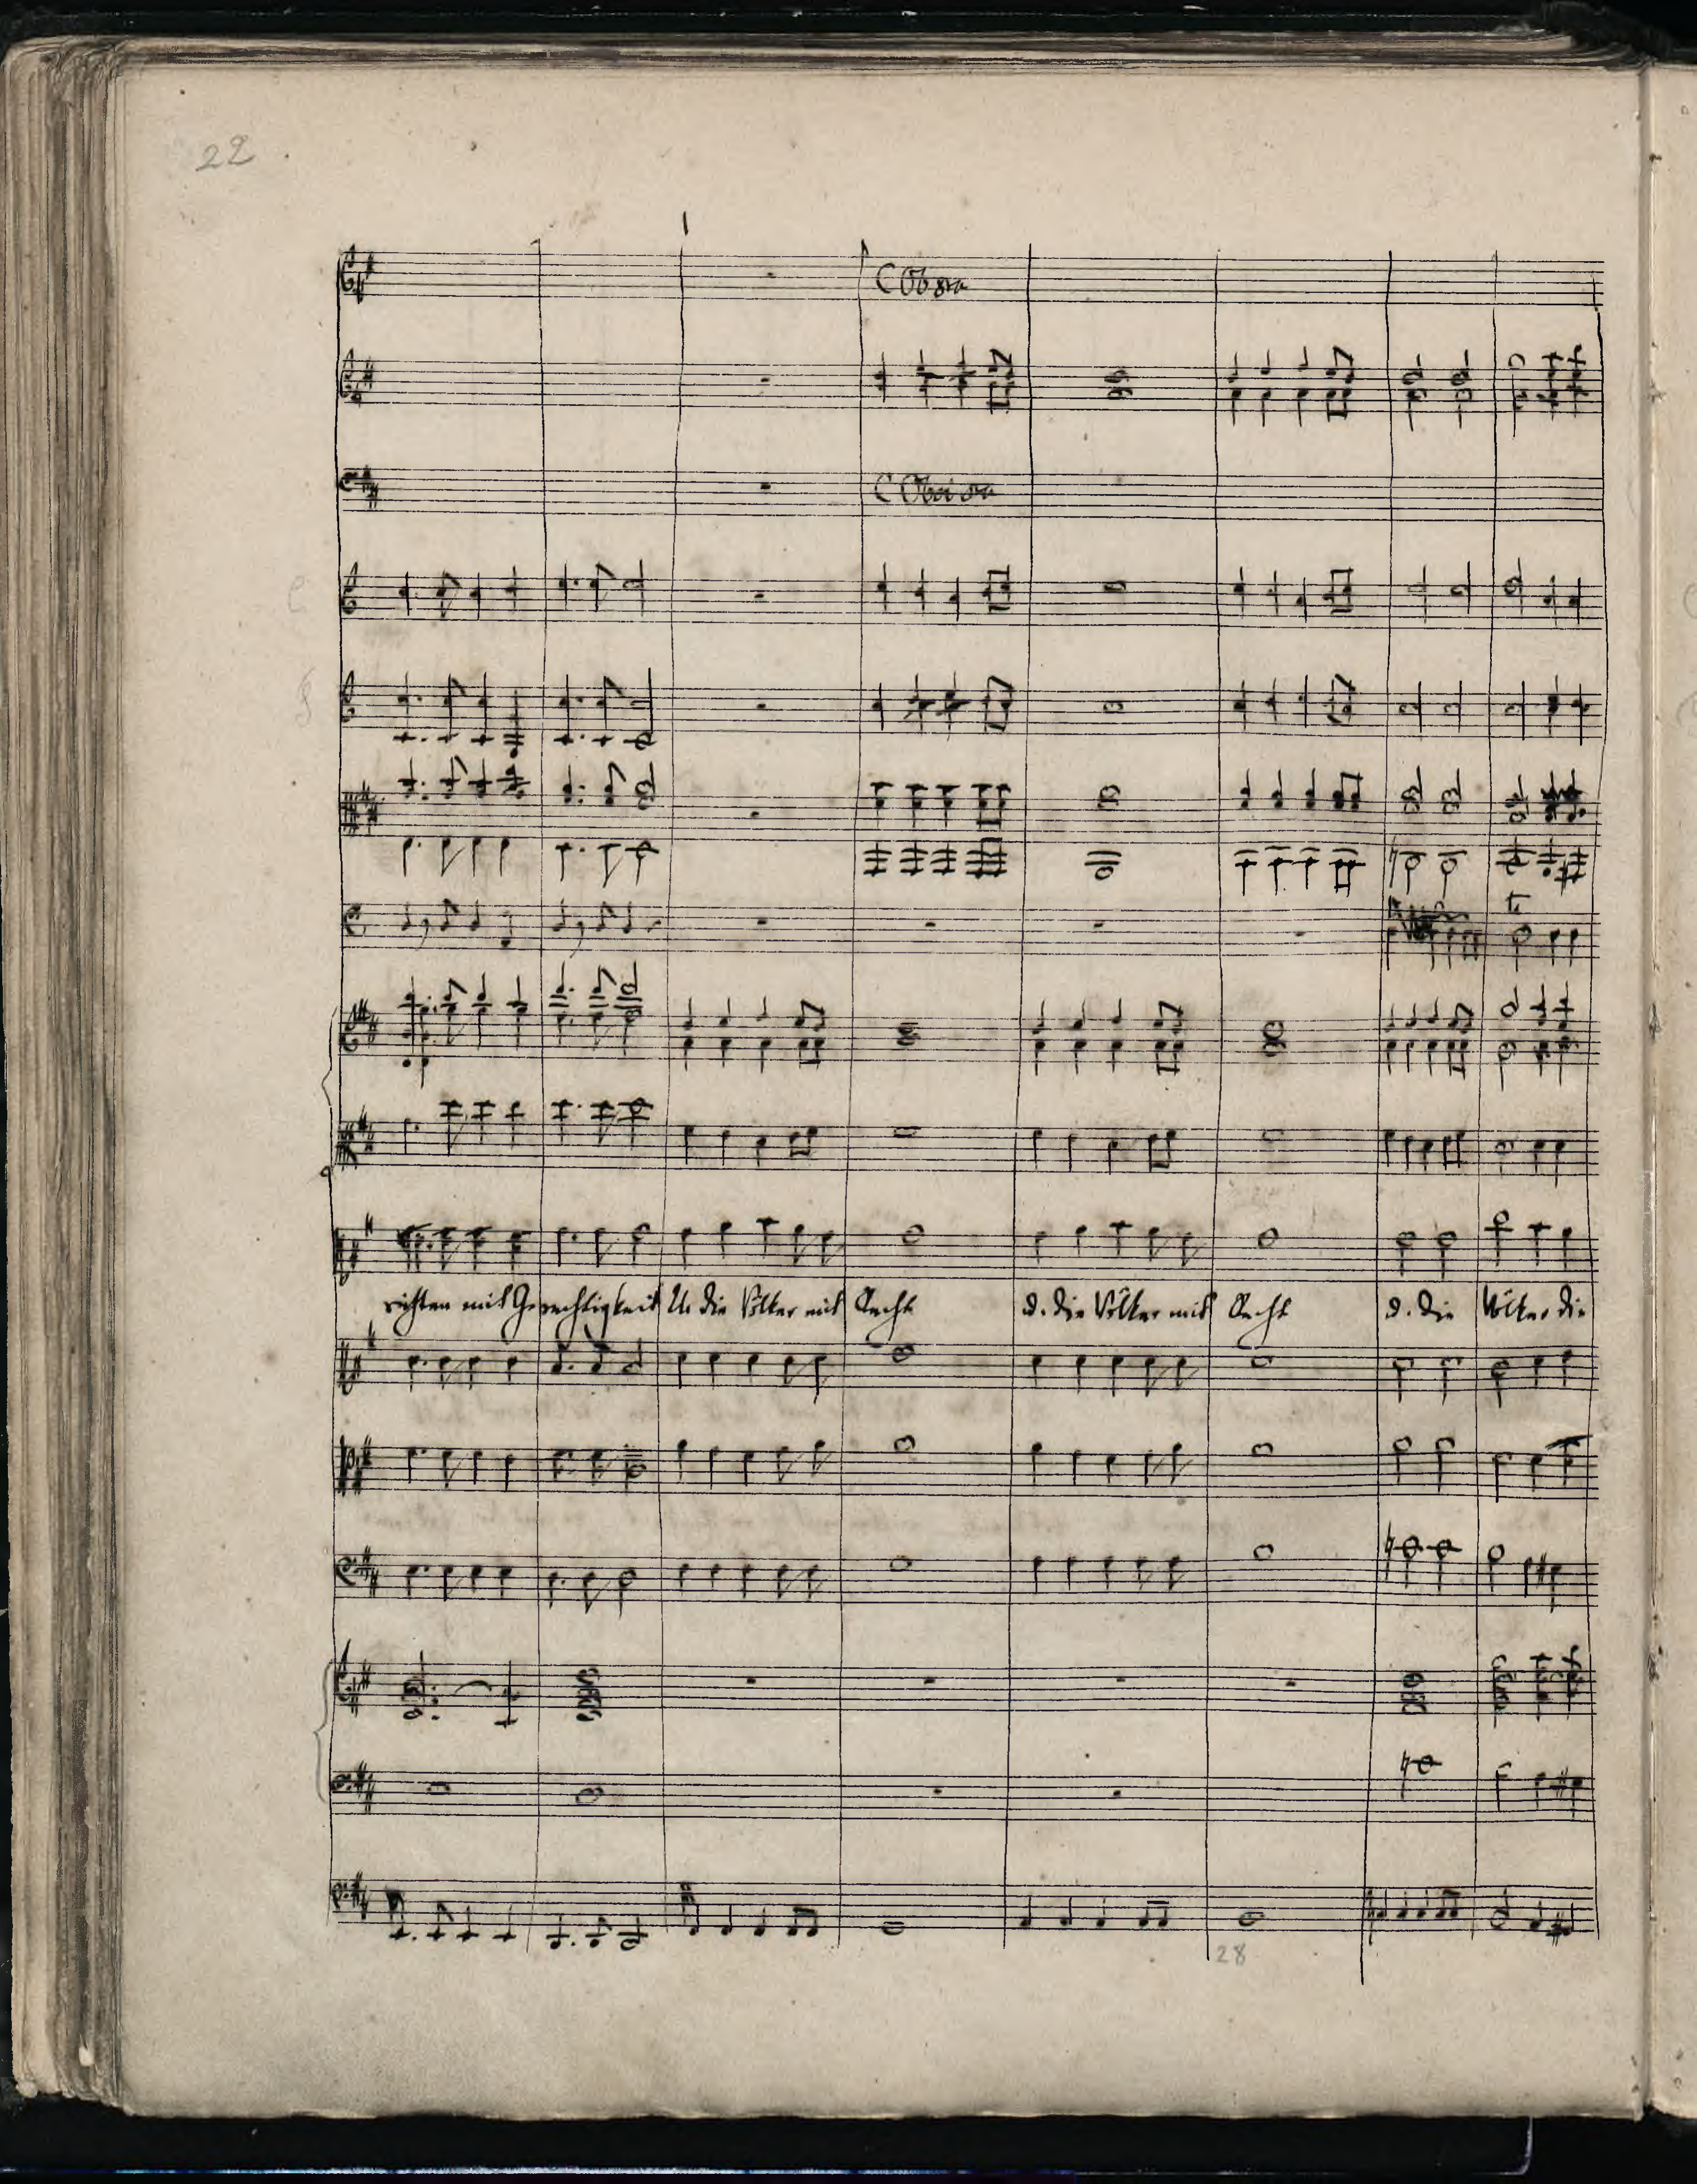 22
C Ob 8va
C Oboi 8va
richten mit Gerechtigkeit U. die Völker mit Recht d. die Völker mit Recht d. die Völker die
28